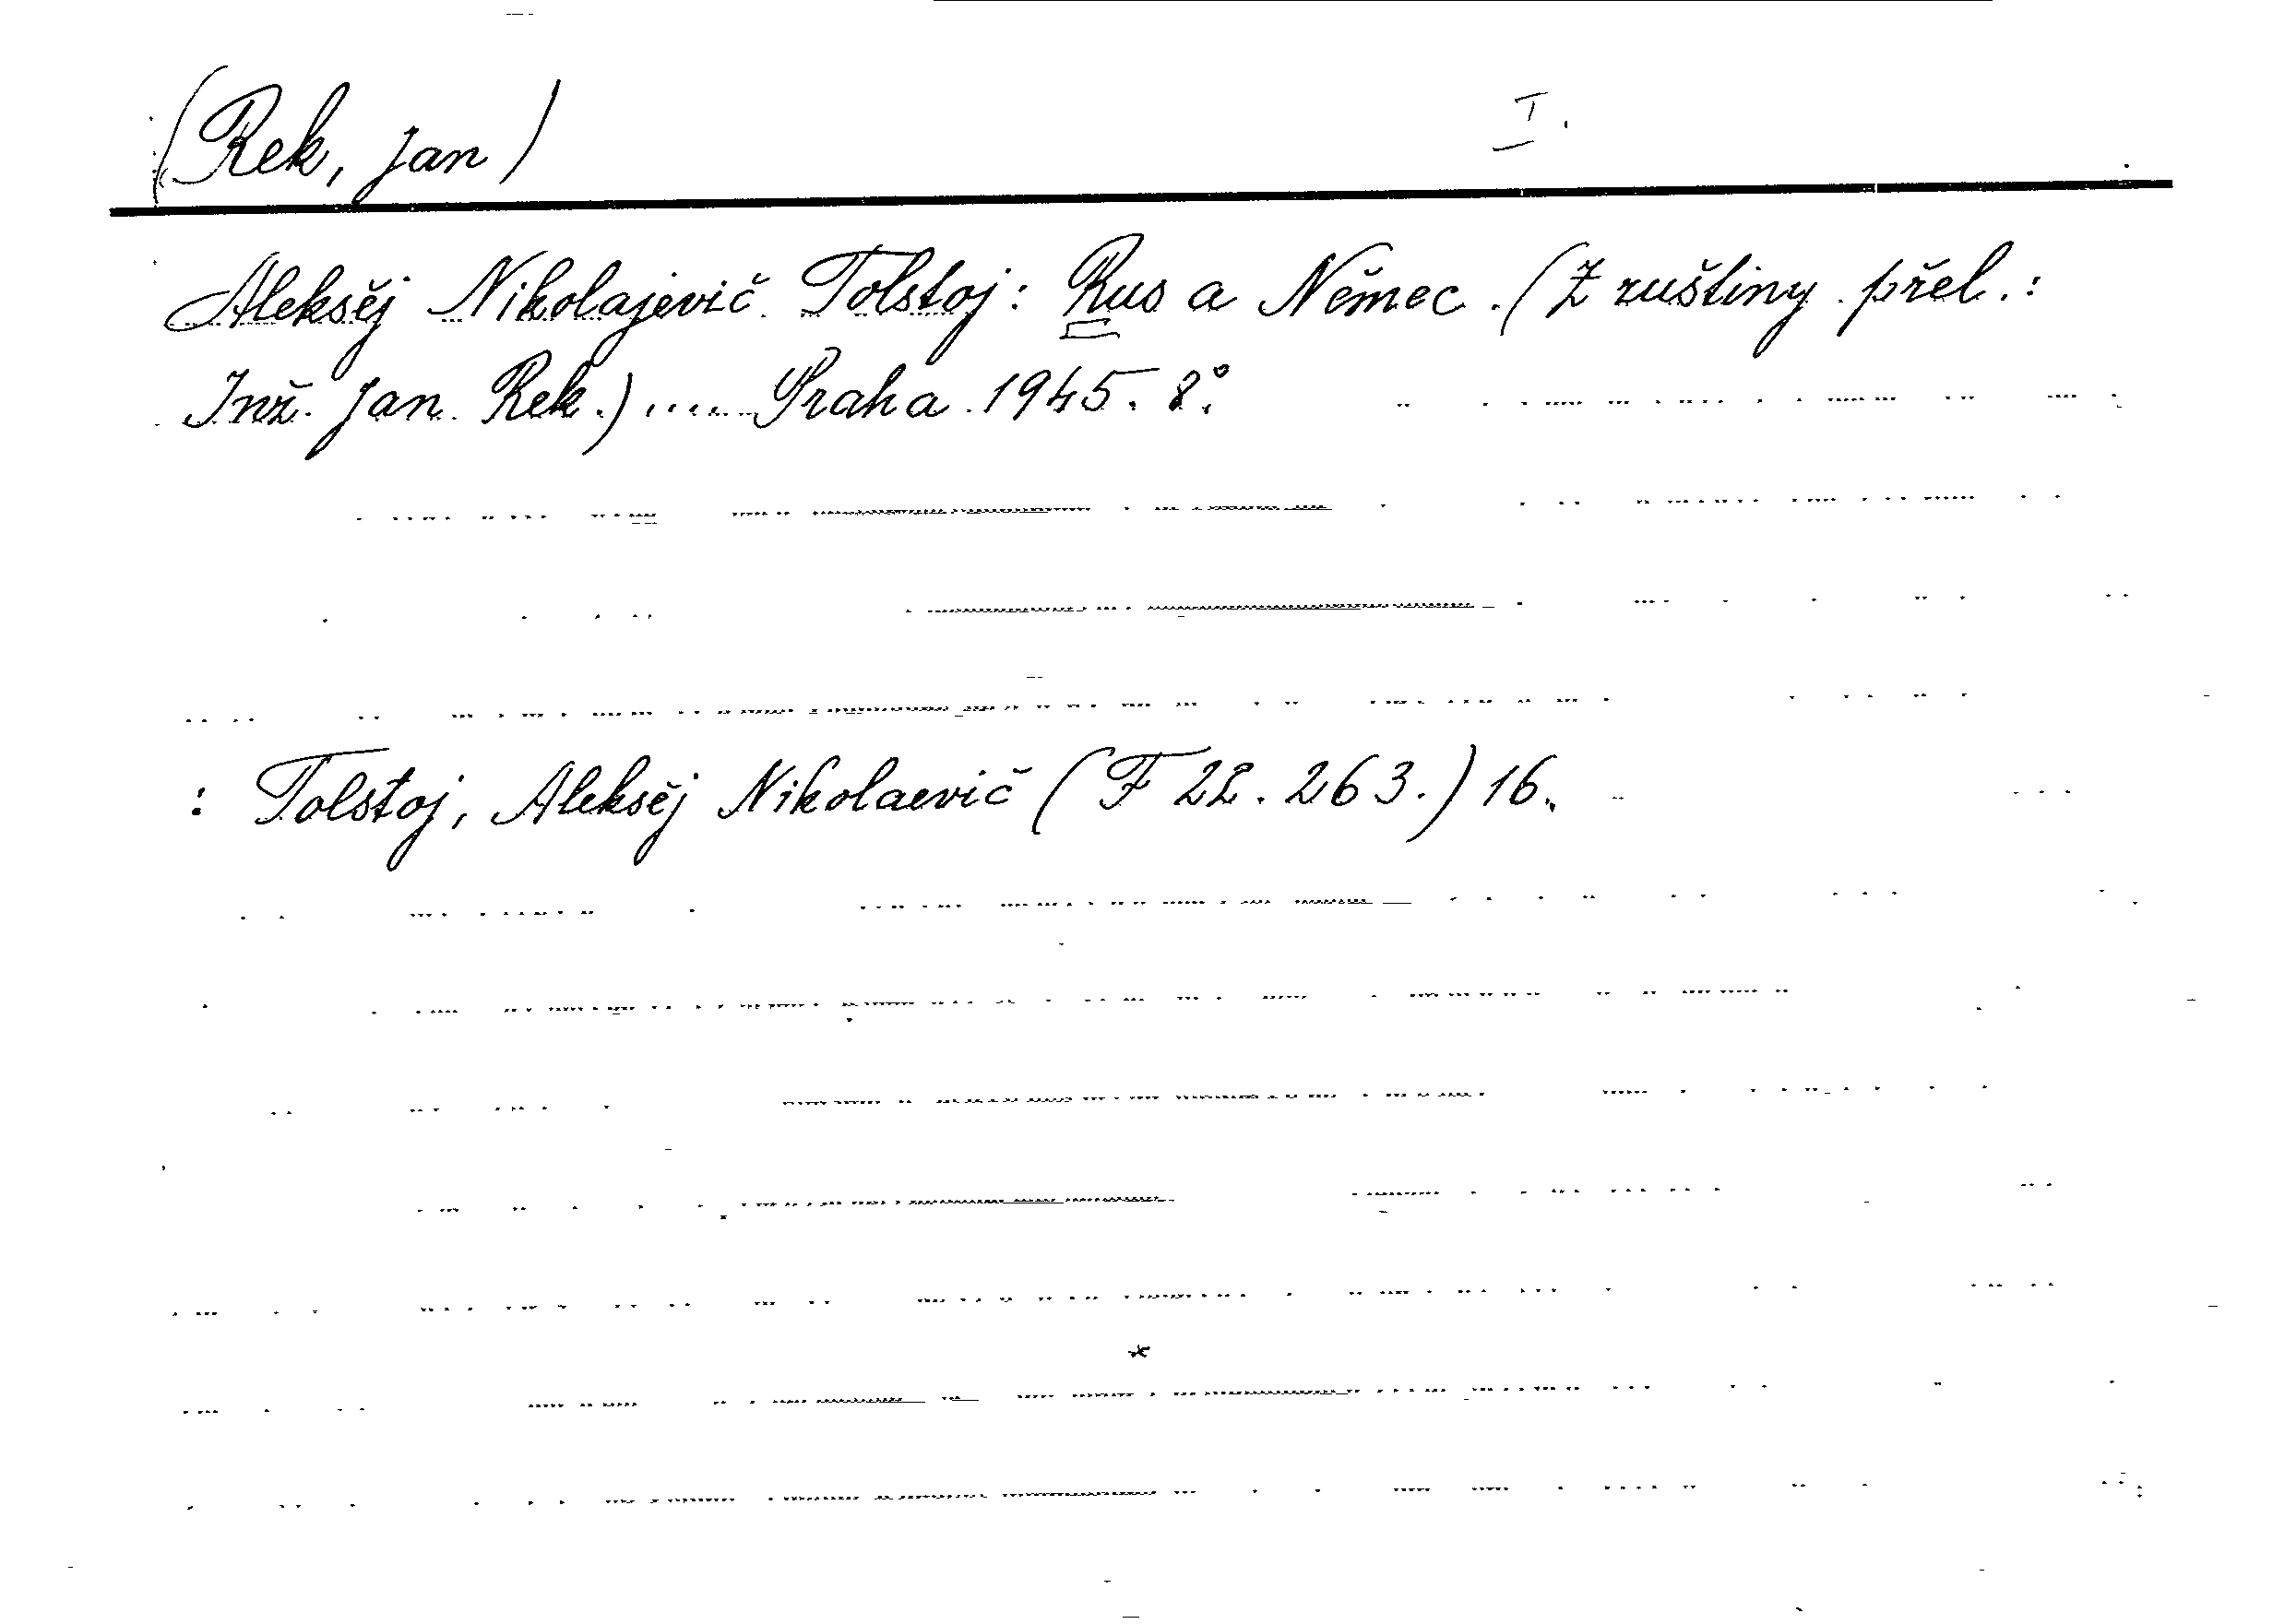 (Rek, Jan) I.
Aleksěj Nikolajevič Tolstoj: Rus a Němec. (Z ruštiny přel.:
Inž. Jan Rek.) ..... Praha 1945. 8°.
: Tolstoj, Aleksěj Nikolaevič (F 22. 263.) 16.